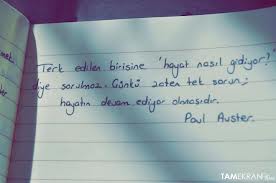 Terk edilen birisine "hayat nasıl gidiyor?"
diye sorulmaz. Çünkü zaten tek sorun;
hayatın devam ediyor olmasıdır.
Paul Auster.
TAMEKRAN